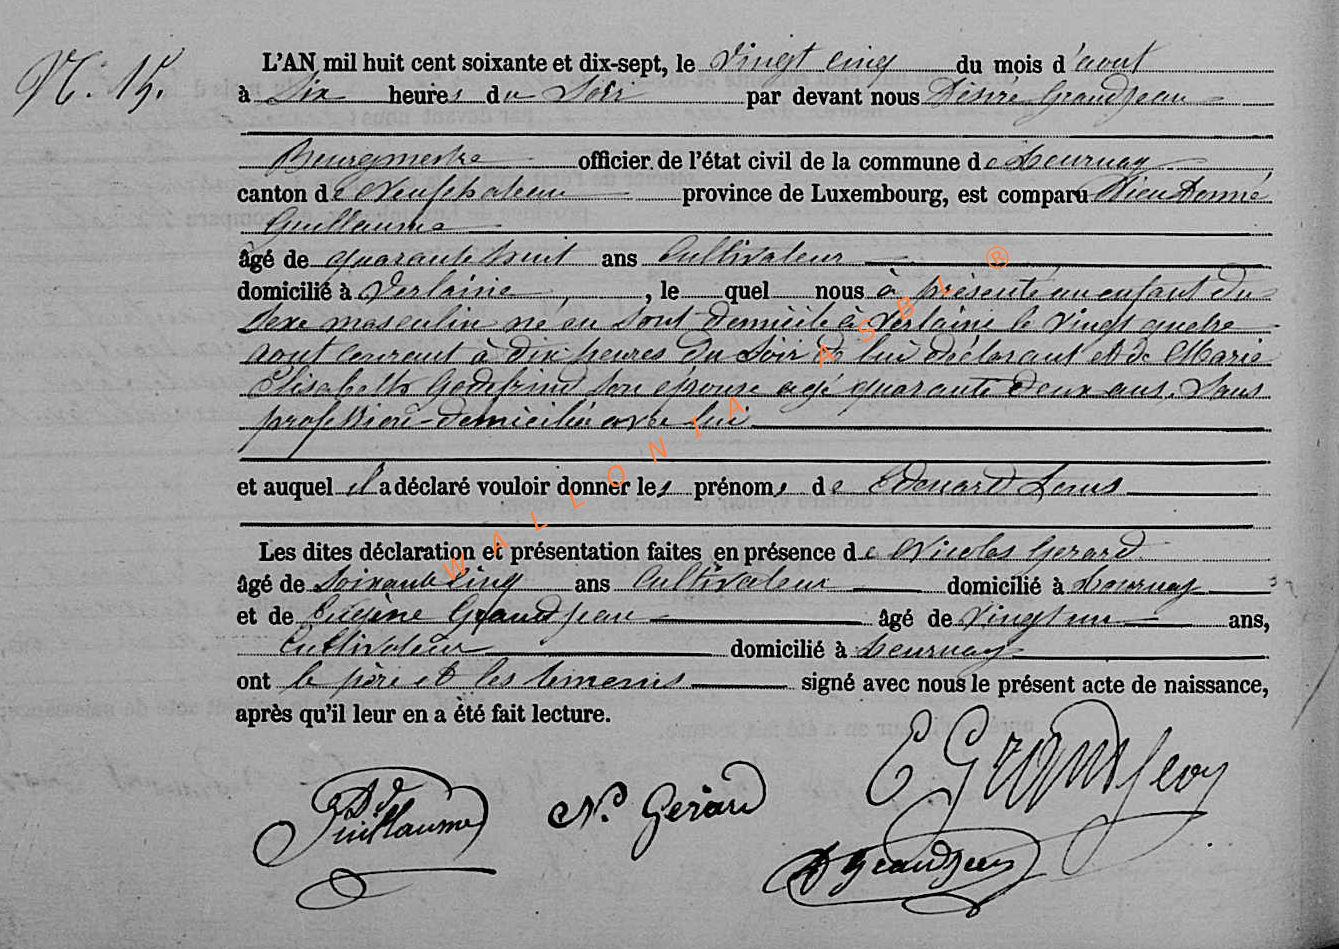 N° 15.
L'AN mil huit cent soixante et dix-sept, le Vingt cinq du mois d'aout
à Six heures du Soir par devant nous Désiré Grandjean
Bourgmestre officier de l'état civil de la commune de Leurnay
canton de Neufchateau province de Luxembourg, est comparu DieuDonné
Guillaume
âgé de quarante huit ans Cultivateur
domicilié à Verlaine, lequel nous à présenté un enfant du
Sexe masculin né en Son domicile à Verlaine le Vingt quatre
aout courant à dix heures du Soir de lui déclarant et de Marie
Elisabeth Godefrind son épouse agé quarante deux ans. Sans
profession domicilié avec lui
et auquel il a déclaré vouloir donner les prénoms de Edouard Louis
Les dites déclaration et présentation faites en présence de Nicolas Gerard
âgé de Soixante Cinq ans Cultivateur domicilié à Lournay
et de Eugène Grandjean âgé de Vingt un ans,
Cultivateur domicilié à Leurnay
ont le père et les temoins signé avec nous le présent acte de naissance,
après qu'il leur en a été fait lecture.
E Grandjean
Dd Guillaume N. Gérard
D Grandjean
WALLONIA ASBL ®